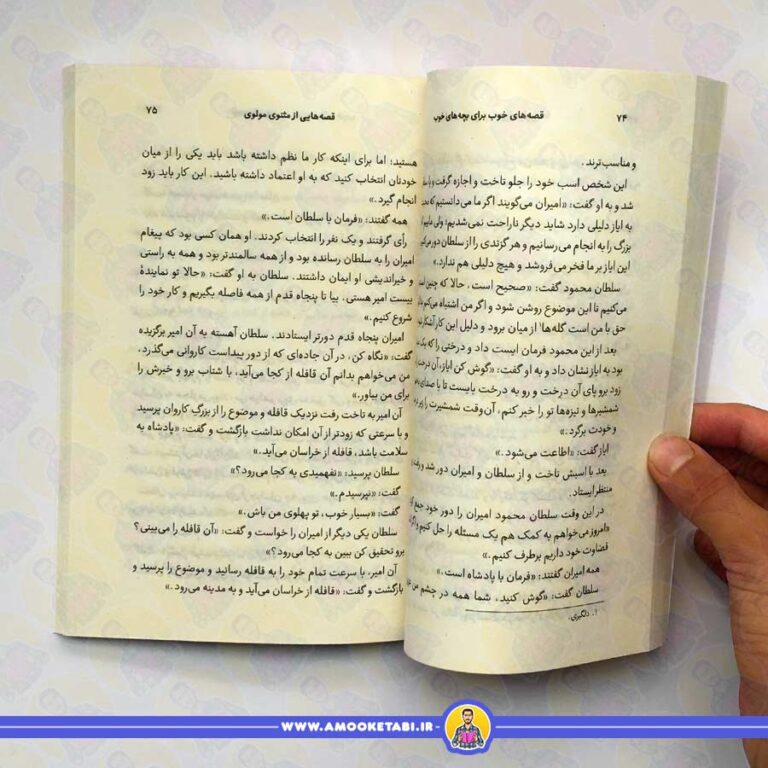 ۷۴
قصه‌های خوب برای بچه‌های خوب
و مناسب‌ترند.
این شخص اسب خود را جلو تاخت و اجازه گرفت و
شد و به او گفت: «امیران می‌گویند اگر ما می‌دانستیم که
به ایاز دلیلی دارد شاید دیگر ناراحت نمی‌شدیم؛ ولی
بزرگ را به انجام می‌رسانیم و هر گزندی را از سلطان دور
این ایاز بر ما فخر می‌فروشد و هیچ دلیلی هم ندارد.»
سلطان محمود گفت: «صحیح است. حالا که چنین
می‌کنیم تا این موضوع روشن شود و اگر من اشتباه
حق با من است گله‌ها۱ از میان برود و دلیل این کار
بعد از این محمود فرمان ایست داد و درختی را که
بود به ایاز نشان داد و به او گفت: «گوش کن ایاز، آن
زود برو پای آن درخت و رو به درخت بایست تا با صدای
شمشیرها و نیزه‌ها تو را خبر کنیم، آن‌وقت شمشیرت را
و خودت برگرد.»
ایاز گفت: «اطاعت می‌شود.»
بعد با اسبش تاخت و از سلطان و امیران دور شد و
منتظر ایستاد.
در این وقت سلطان محمود امیران را دور خود جمع
«امروز می‌خواهم به کمک هم یک مسئله را حل کنیم و
قضاوت خود داریم برطرف کنیم.»
همه امیران گفتند: «فرمان با پادشاه است.»
سلطان گفت: «گوش کنید. شما همه در چشم من
۱. دلگیری.
قصه‌هایی از مثنوی مولوی
۷۵
هستید؛ اما برای اینکه کار ما نظم داشته باشد باید یکی را از میان
خودتان انتخاب کنید که به او اعتماد داشته باشید. این کار باید زود
انجام گیرد.»
همه گفتند: «فرمان با سلطان است.»
رأی گرفتند و یک نفر را انتخاب کردند. او همان کسی بود که پیغام
امیران را به سلطان رسانده بود و از همه سالمندتر بود و همه به راستی
و خیراندیشی او ایمان داشتند. سلطان به او گفت: «حالا تو نمایندۀ
بیست امیر هستی. بیا تا پنجاه قدم از همه فاصله بگیریم و کار خود را
شروع کنیم.»
امیران پنجاه قدم دورتر ایستادند. سلطان آهسته به آن امیر برگزیده
گفت: «نگاه کن، در آن جاده‌ای که از دور پیداست کاروانی می‌گذرد،
من می‌خواهم بدانم آن قافله از کجا می‌آید، با شتاب برو و خبرش را
برای من بیاور.»
آن امیر به تاخت رفت نزدیک قافله و موضوع را از بزرگ کاروان پرسید
و با سرعتی که زودتر از آن امکان نداشت بازگشت و گفت: «پادشاه به
سلامت باشد، قافله از خراسان می‌آید.»
سلطان پرسید: «نفهمیدی به کجا می‌رود؟»
گفت: «نپرسیدم.»
گفت: «بسیار خوب، تو پهلوی من باش.»
سلطان یکی دیگر از امیران را خواست و گفت: «آن قافله را می‌بینی؟
برو تحقیق کن ببین به کجا می‌رود؟»
آن امیر، با سرعت تمام خود را به قافله رسانید و موضوع را پرسید و
بازگشت و گفت: «قافله از خراسان می‌آید و به مدینه می‌رود.»
WWW.AMOOKETABI.IR